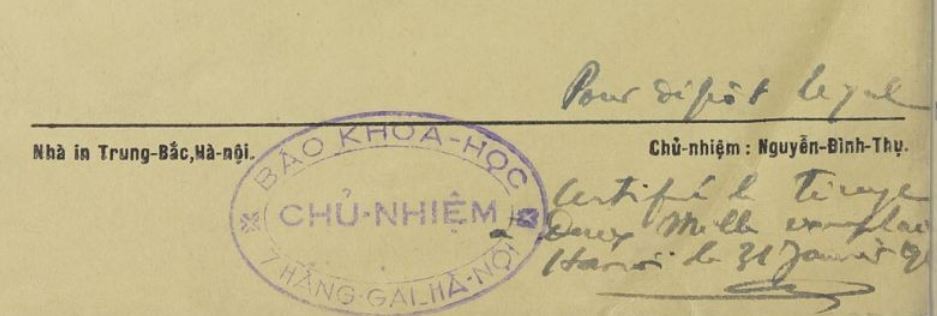 Pour dépôt légal
Nhà in Trung-Bắc,Hà-nội.
Chủ-nhiệm : Nguyễn-Đình-Thụ.
BÁO KHOA-HỌC
CHỦ-NHIỆM
7 HÀNG-GAI_HÀ-NỘI
Certifié le tirage
Deux Mille
Hanoi le 31 Janvier